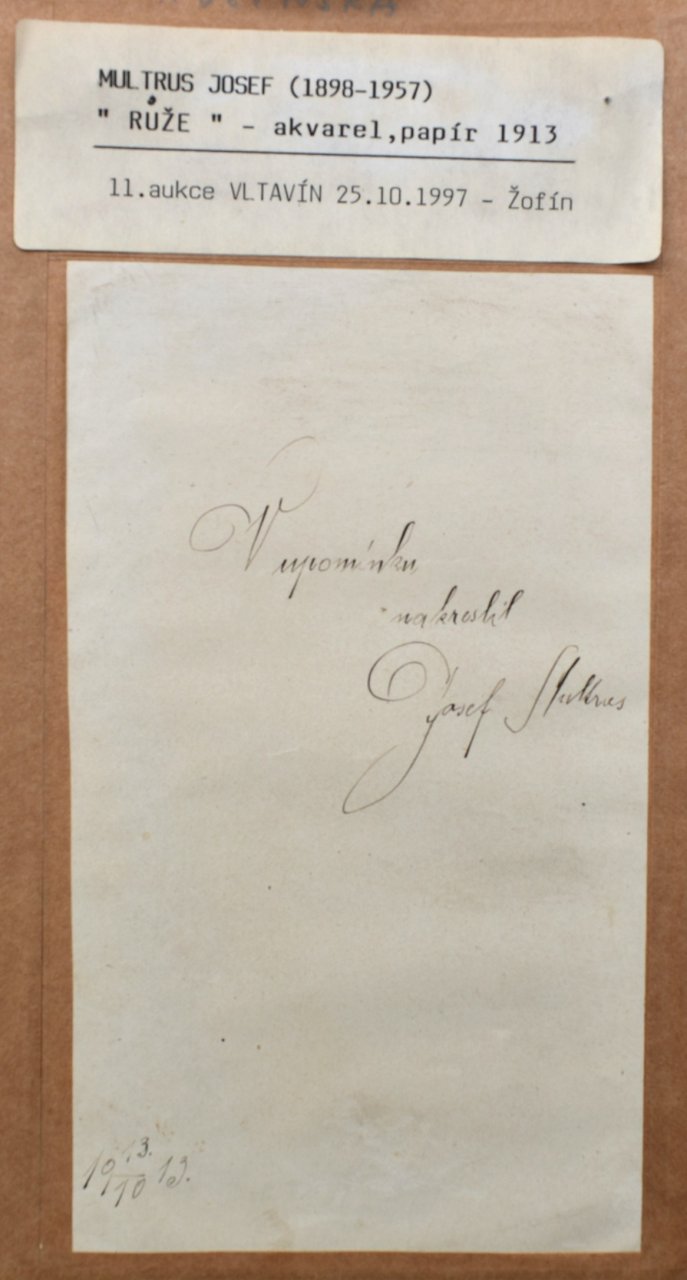 MULTRUS JOSEF (1898-1957)
" RŮŽE " - akvarel,papír 1913
11.aukce VLTAVÍN 25.10.1997 - Žofín
V upomínku
nakreslil
Josef Multrus
19 13. 13.
10